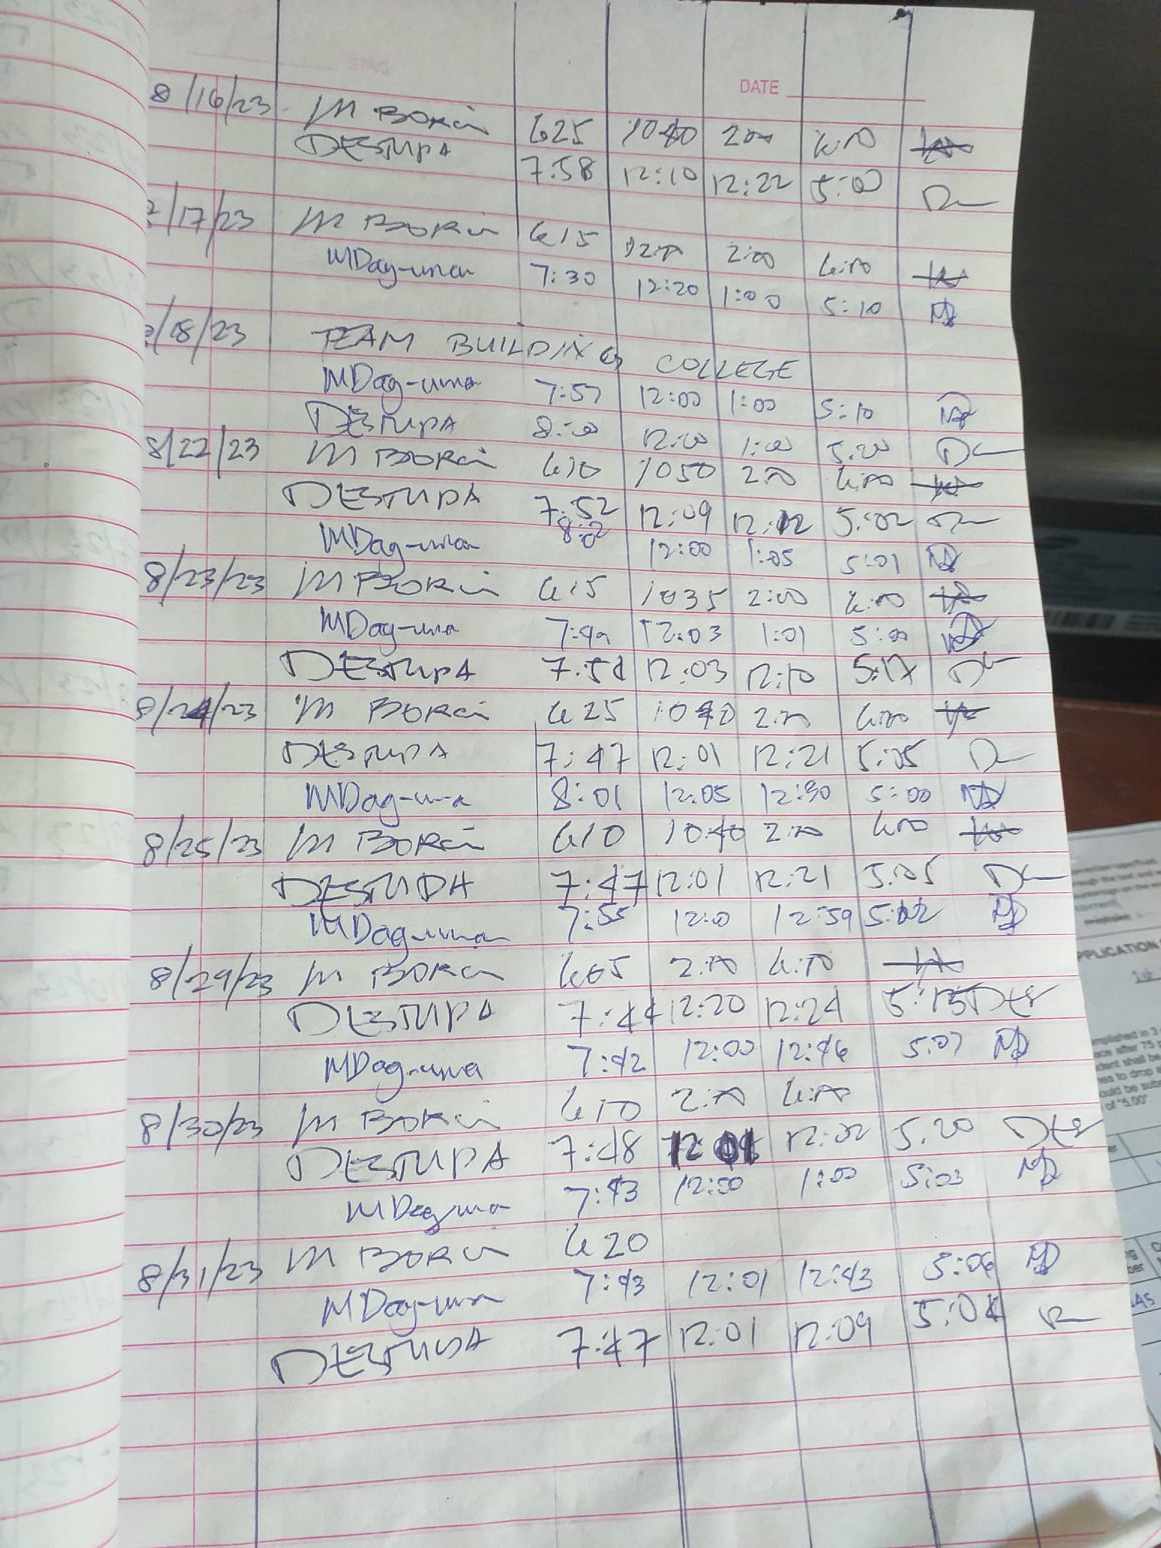 DATE
8/16/23 M BORCI 625 1040 200 4:00
DESTUPA 7:58 12:10 12:22 5:00
/17/23 M BORCI 615 12:00 2:00 4:00
MDag-uman 7:30 12:20 1:00 5:10
/18/23 TEAM BUILDING COLLEGE
MDag-uma 7:57 12:00 1:00 5:10
DESTUPA 8:00 12:00 1:00 5:20
8/22/23 M BORCI 610 1050 2:00 4:00
DESTUPA 7:52 12:09 12:12 5:02
MDag-uman 8:02 12:00 1:05 5:01
8/23/23 M BORCI 615 1035 2:00 4:00
MDag-uma 12:03 1:01 5:00
DESTUPA 12:03 12:10 5:17
8/24/23 M BORCI 625 1040 2:00 4:00
DESTUPA 7:47 12:01 12:21 5:05
MDag-uma 8:01 12:05 12:30 5:00
8/25/23 M BORCI 610 1040 2:00 4:00
DESTUPA 7:47 12:01 12:21 5:05
MDag-uman 7:55 12:0 12:59 5:02
8/29/23 M BORCI 605 2:00 4:00
DESTUPA 7:44 12:20 12:24 5:15 DES
MDag-uma 7:42 12:00 12:46 5:07 MD
8/30/23 M BORCI 610 2:00 4:00
DESTUPA 7:48 12:01 12:02 5:20 DES
MDaguma 7:43 12:00 1:00 5:03 MD
8/31/23 M BORCI 620
MDag-uma 7:43 12:01 12:43 5:06 MD
DESTUPA 7:47 12:01 12:09 5:04